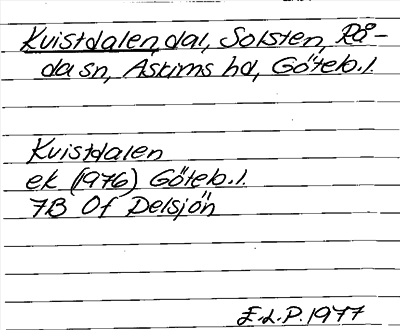 Kvistdalen, dal, Solsten, Rå-
da sn, Askims hd, Göteb. l.
Kvistdalen
ek (1976) Göteb. l.
7B 0f Delsjön
E.L.P. 1977